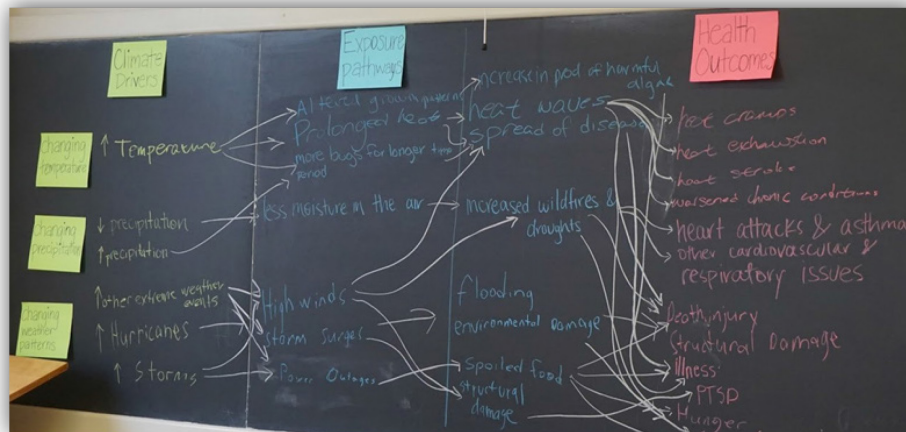 Climate
Drivers
Exposure
pathways
Health
Outcomes
changing
temperature
changing
precipitation
changing
weather
patterns
↑ Temperature
↓ precipitation
↑ precipitation
↑ other extreme weather
events
↑ Hurricanes
↑ Storms
Altered growth patterns
Prolonged heat
more bugs for longer time
period
less moisture in the air
High winds
storm surges
Power Outages
increase in pod of harmful
algae
heat waves
spread of disease
increased wildfires &
droughts
flooding
environmental damage
spoiled food
structural
damage
heat cramps
heat exhaustion
heat stroke
worsened chronic conditions
heart attacks & asthma
other cardiovascular &
respiratory issues
Death, injury
Structural Damage
Illness
PTSD
Hunger